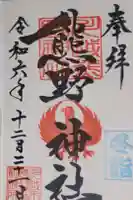 奉拝
熊野神社
令和六年十二月二十一日